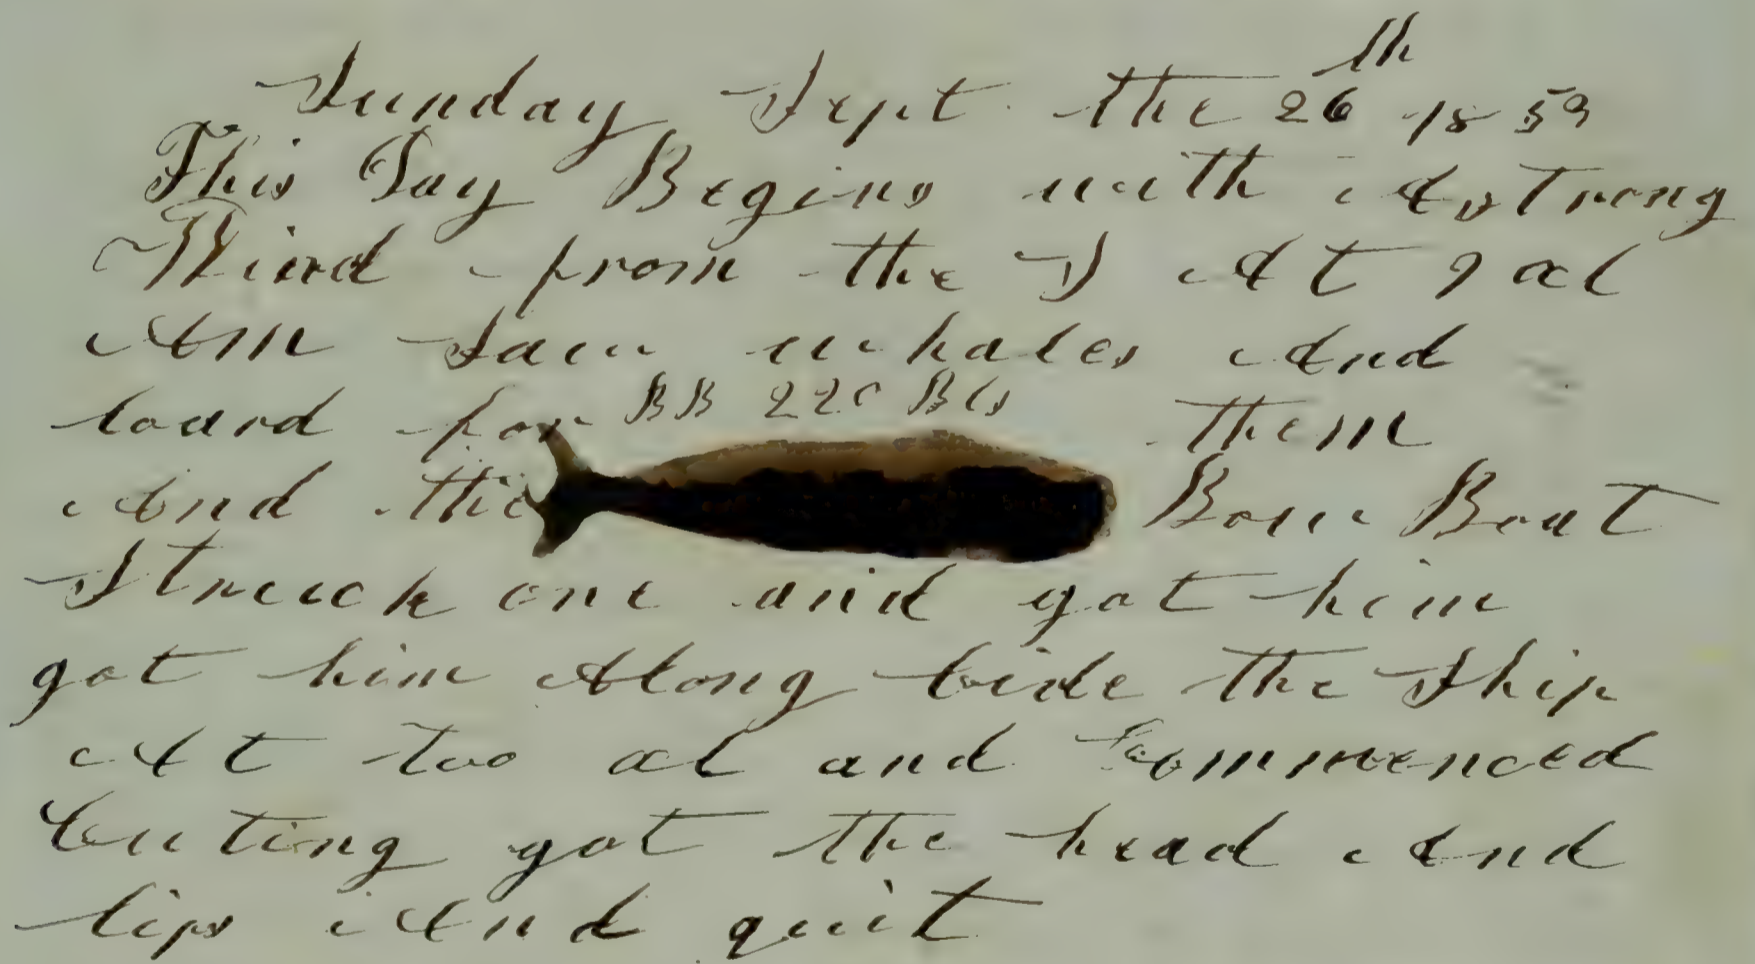 Sunday Sept the 26th 1859
This Day Begins with A strong
Wind from the S At 9 ocl
Am Saw whales And
loard for BB 220 Bls them
And the Bow Boat
Struck one and got him
got him Along Side the Ship
At two ocl and Commenced
Cuting got the head And
lips And quit